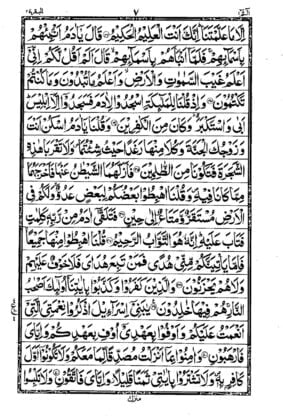 الٓمّٓ ١ ٧ البقرة ٢
اِلَّا مَا عَلَّمْتَنَا اِنَّكَ اَنْتَ الْعَلِيْمُ الْحَكِيْمُ قَالَ يٰٓاٰدَمُ اَنْۢبِئْهُمْ
بِاَسْمَآئِهِمْ فَلَمَّآ اَنْۢبَاَهُمْ بِاَسْمَآئِهِمْ قَالَ اَلَمْ اَقُلْ لَّكُمْ اِنِّىْٓ
اَعْلَمُ غَيْبَ السَّمٰوٰتِ وَالْاَرْضِ وَاَعْلَمُ مَا تُبْدُوْنَ وَمَا كُنْتُمْ
تَكْتُمُوْنَ وَاِذْ قُلْنَا لِلْمَلٰٓئِكَةِ اسْجُدُوْا لِاٰدَمَ فَسَجَدُوْٓا اِلَّآ اِبْلِيْسَ
اَبٰى وَاسْتَكْبَرَ وَكَانَ مِنَ الْكٰفِرِيْنَ وَقُلْنَا يٰٓاٰدَمُ اسْكُنْ اَنْتَ
وَزَوْجُكَ الْجَنَّةَ وَكُلَا مِنْهَا رَغَدًا حَيْثُ شِئْتُمَا وَلَا تَقْرَبَا هٰذِهِ
الشَّجَرَةَ فَتَكُوْنَا مِنَ الظّٰلِمِيْنَ فَاَزَلَّهُمَا الشَّيْطٰنُ عَنْهَا فَاَخْرَجَهُمَا
مِمَّا كَانَا فِيْهِ وَقُلْنَا اهْبِطُوْا بَعْضُكُمْ لِبَعْضٍ عَدُوٌّ وَلَكُمْ فِى
الْاَرْضِ مُسْتَقَرٌّ وَّمَتَاعٌ اِلٰى حِيْنٍ فَتَلَقّٰٓى اٰدَمُ مِنْ رَّبِّهٖ كَلِمٰتٍ
فَتَابَ عَلَيْهِ اِنَّهٗ هُوَ التَّوَّابُ الرَّحِيْمُ قُلْنَا اهْبِطُوْا مِنْهَا جَمِيْعًا
فَاِمَّا يَاْتِيَنَّكُمْ مِّنِّىْ هُدًى فَمَنْ تَبِعَ هُدَاىَ فَلَا خَوْفٌ عَلَيْهِمْ
وَلَا هُمْ يَحْزَنُوْنَ وَالَّذِيْنَ كَفَرُوْا وَكَذَّبُوْا بِاٰيٰتِنَآ اُولٰٓئِكَ اَصْحٰبُ
النَّارِ هُمْ فِيْهَا خٰلِدُوْنَ يٰبَنِىْٓ اِسْرَآءِيْلَ اذْكُرُوْا نِعْمَتِىَ الَّتِىْٓ
اَنْعَمْتُ عَلَيْكُمْ وَاَوْفُوْا بِعَهْدِىْٓ اُوْفِ بِعَهْدِكُمْ وَاِيَّاىَ
فَارْهَبُوْنِ وَاٰمِنُوْا بِمَآ اَنْزَلْتُ مُصَدِّقًا لِّمَا مَعَكُمْ وَلَا تَكُوْنُوْٓا اَوَّلَ
كَافِرٍۢ بِهٖ وَلَا تَشْتَرُوْا بِاٰيٰتِىْ ثَمَنًا قَلِيْلًا وَّاِيَّاىَ فَاتَّقُوْنِ وَلَا تَلْبِسُوا
منزل